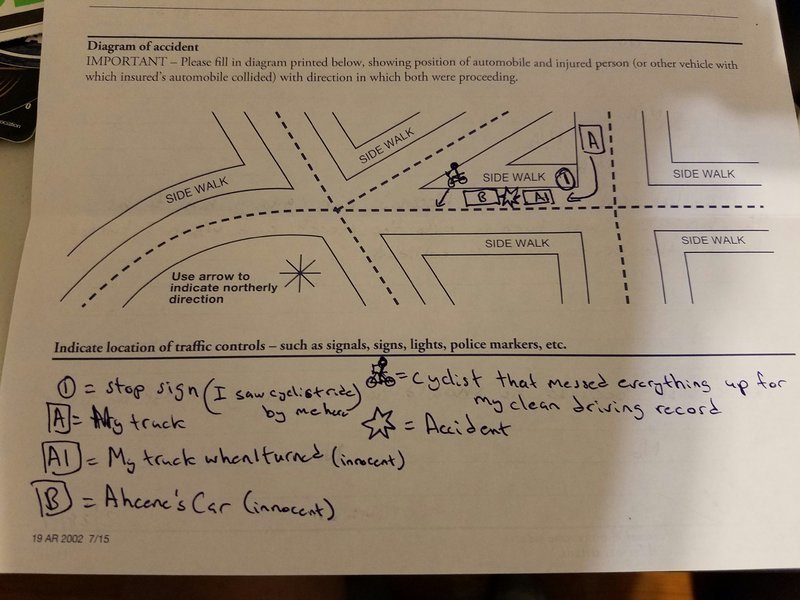 Diagram of accident
IMPORTANT – Please fill in diagram printed below, showing position of automobile and injured person (or other vehicle with
which insured's automobile collided) with direction in which both were proceeding.
SIDE WALK
SIDE WALK
A
SIDE WALK
1
SIDE WALK
B
A1
SIDE WALK
SIDE WALK
Use arrow to
indicate northerly
direction
Indicate location of traffic controls – such as signals, signs, lights, police markers, etc.
1 = stop sign (I saw cyclist ride
by me here)
A = My truck
A1 = My truck when I turned (innocent)
B = Ahcene's Car (innocent)
= Cyclist that messed everything up for
my clean driving record
= Accident
19 AR 2002 7/15